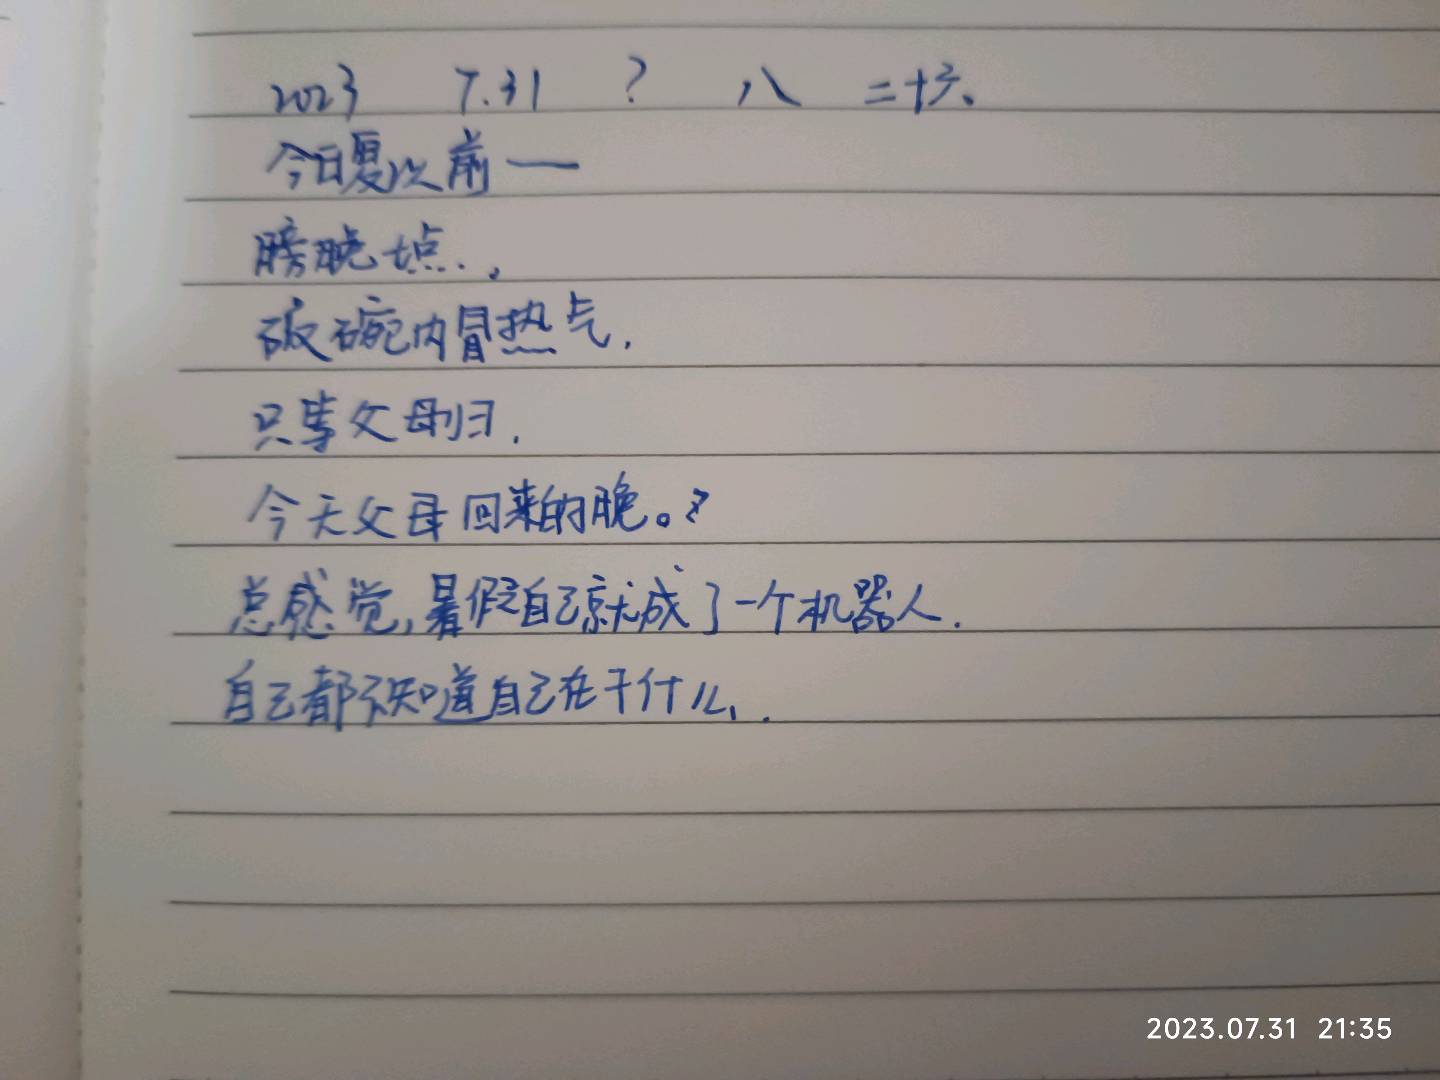 2023 7.31 ? 八 二十六、
今日复以前一
膀晚七点..,
破碗内冒热气,
只等父母归.
今天父母回来的晚。?
总感觉,暑假自己就成了一个机器人.
自己都不知道自己在干什么、.
2023.07.31 21:35